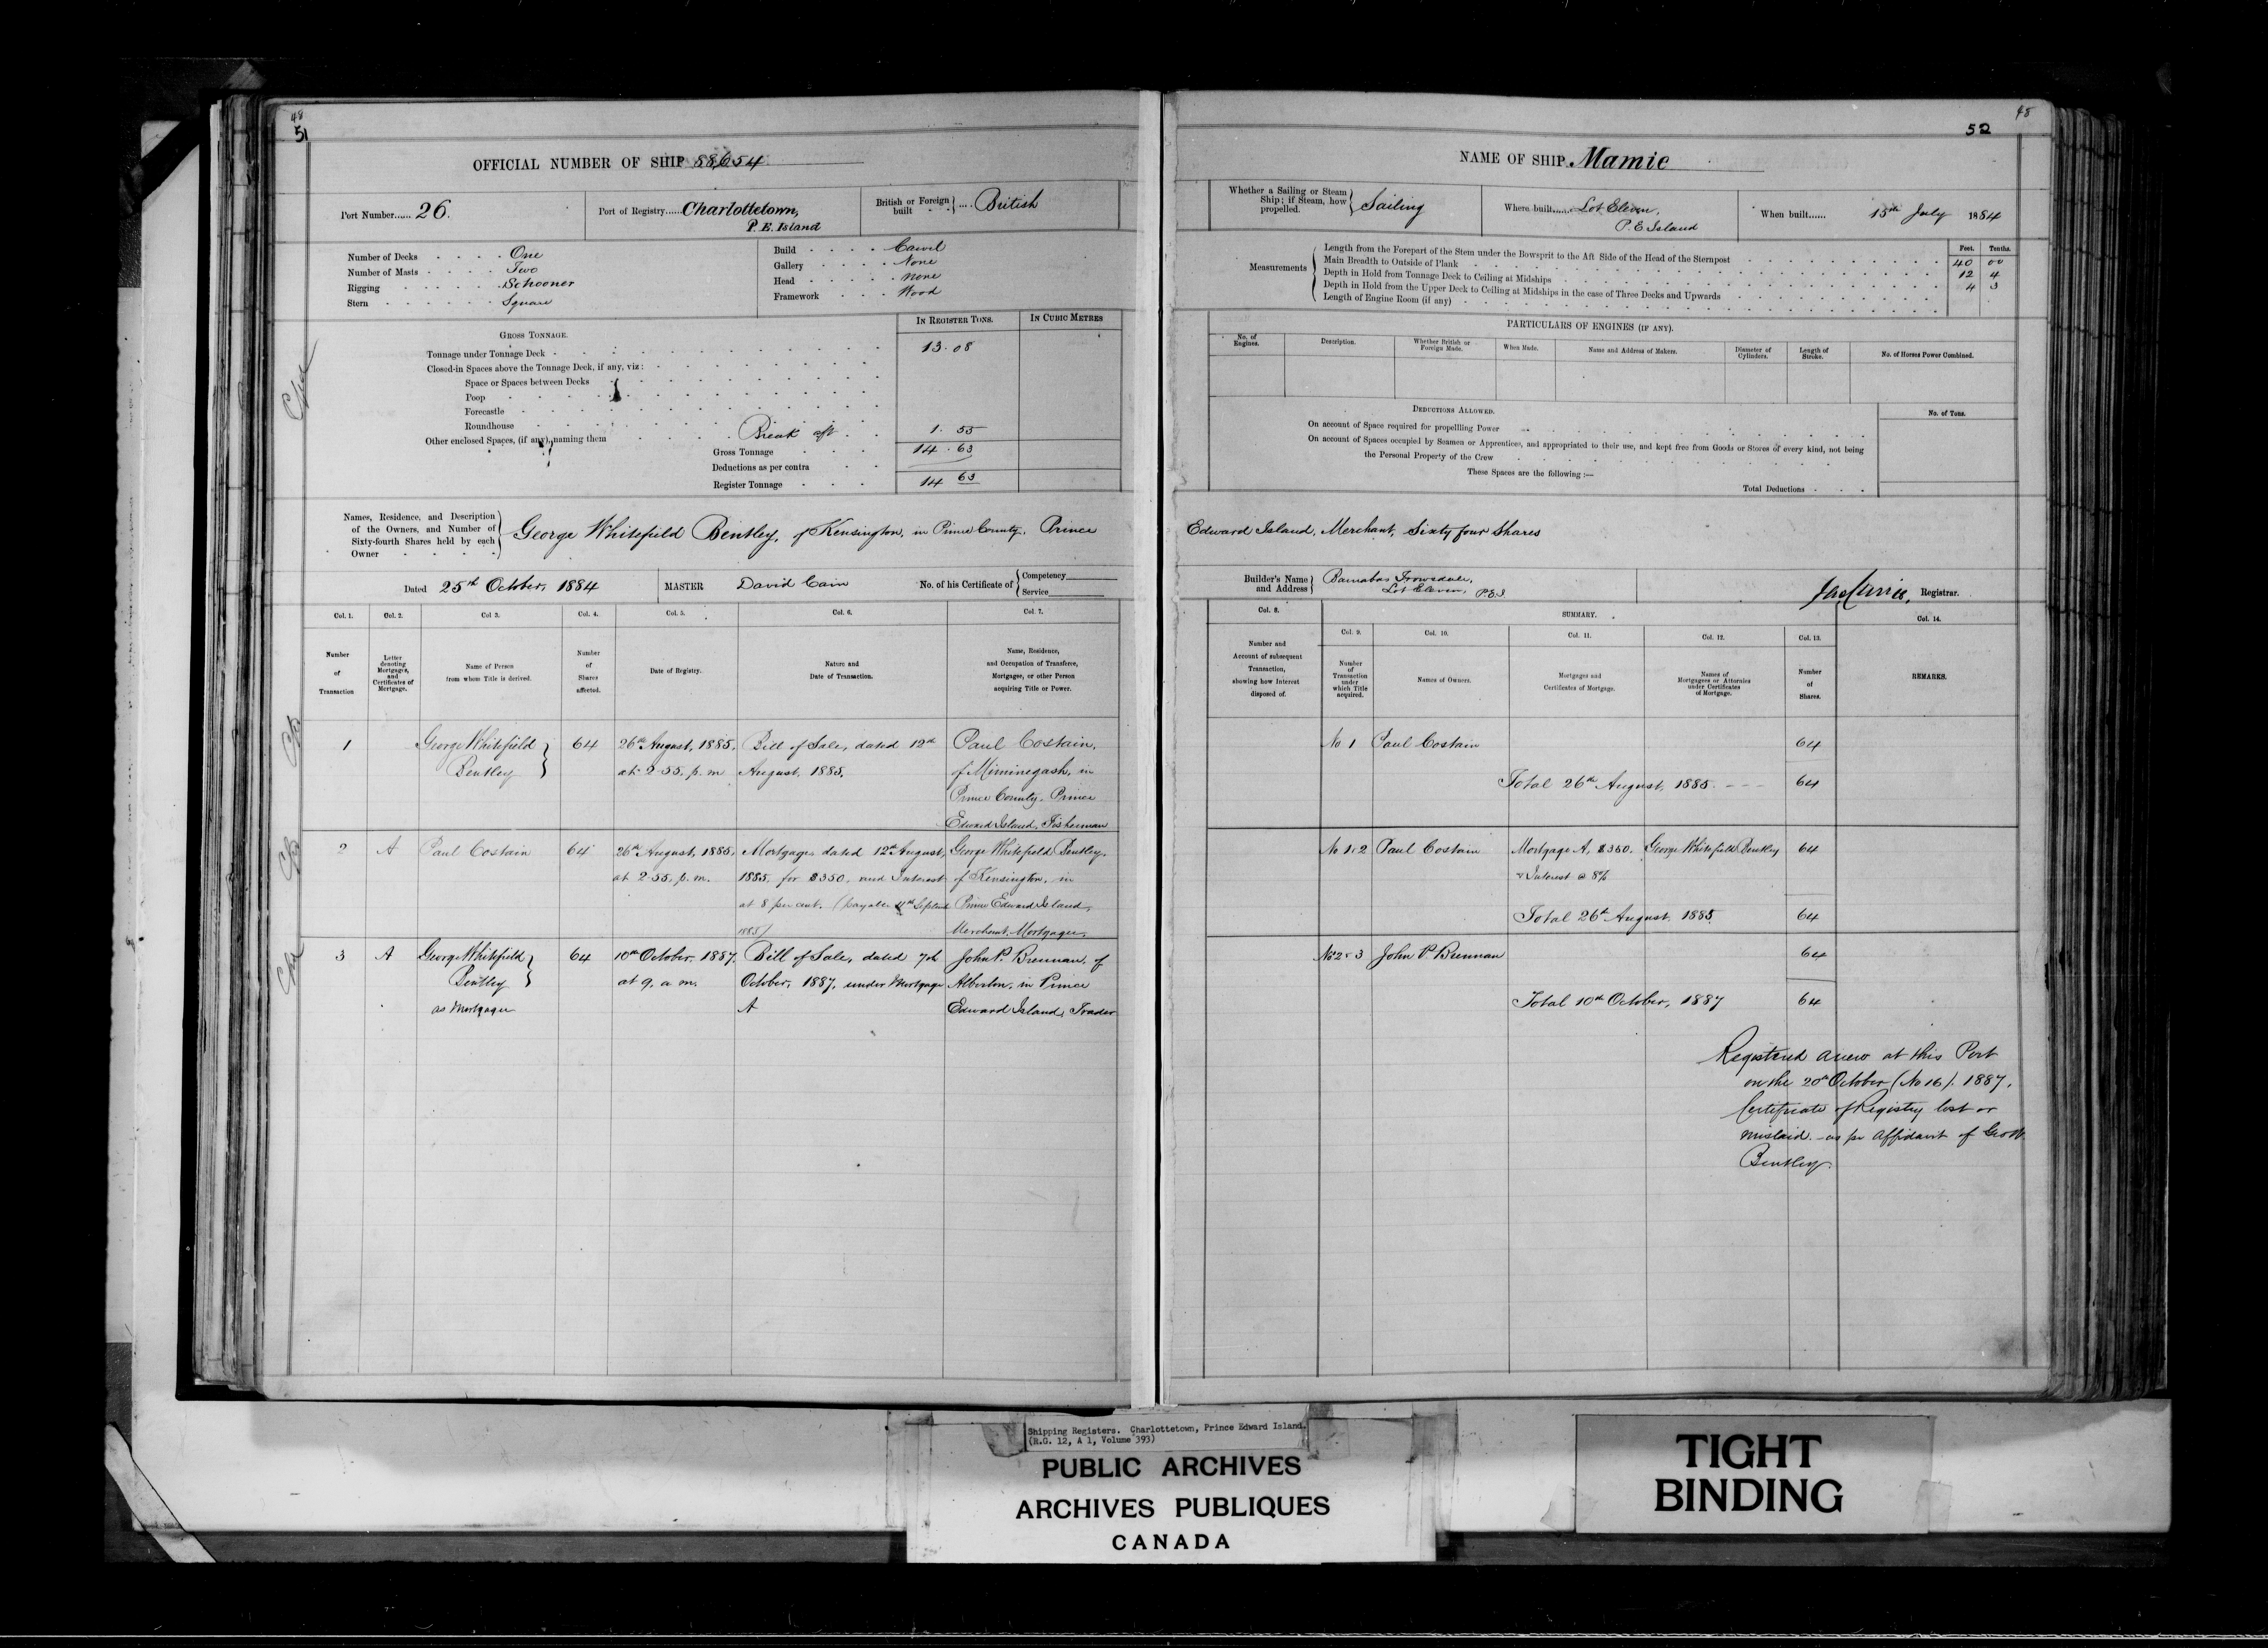 48
51
OFFICIAL NUMBER OF SHIP 88,654
Port Number...... 26.
Port of Registry...... Charlottetown,
P. E. Island
British or Foreign built .... British
Number of Decks One
Number of Masts Two
Rigging Schooner
Stern Square
Build Carvel
Gallery None
Head None
Framework Wood
GROSS TONNAGE.
IN REGISTER TONS.
IN CUBIC METRES
Tonnage under Tonnage Deck 13.08
Closed-in Spaces above the Tonnage Deck, if any, viz:
Space or Spaces between Decks
Poop
Forecastle
Roundhouse
Other enclosed Spaces, (if any), naming them Break aft 1.55
Gross Tonnage 14.63
Deductions as per contra
Register Tonnage 14 63
Names, Residence, and Description
of the Owners, and Number of
Sixty-fourth Shares held by each
Owner
George Whitefield Bentley, of Kensington, in Prince County, Prince
Dated 25th October, 1884
MASTER David Cain
No. of his Certificate of Competency
Service
Col. 1. Col. 2. Col 3. Col. 4. Col. 5. Col. 6. Col. 7.
Number
of
Transaction
Letter
denoting
Mortgages,
and
Certificates of
Mortgage.
Name of Person
from whom Title is derived.
Number
of
Shares
affected.
Date of Registry.
Nature and
Date of Transaction.
Name, Residence,
and Occupation of Transferee,
Mortgagee, or other Person
acquiring Title or Power.
1 George Whitefield 64 26th August, 1885, Bill of Sale, dated 12th Paul Costain,
Bentley at 2.55. p. m August, 1885. of Miminegash, in
Prince County, Prince
Edward Island, Fisherman
2 A Paul Costain 64 26th August, 1885, Mortgage, dated 12th August, George Whitefield Bentley,
at 2.55. p. m. 1885, for $350, and Interest of Kensington, in
at 8 per cent. (payable Prince Edward Island,
1885) Merchant, Mortgagee,
3 A George Whitefield 64 10th October, 1887, Bill of Sale, dated 7th John P. Brennan, of
Bentley at 9, a. m. October, 1887, under Mortgage Alberton, in Prince
as Mortgagee A Edward Island, Trader
48
52
NAME OF SHIP Mamie
Whether a Sailing or Steam
Ship; if Steam, how
propelled. Sailing
Where built...... Lot Eleven,
P. E Island
When built...... 15th July 1884
Measurements
Feet. Tenths.
Length from the Forepart of the Stem under the Bowsprit to the Aft Side of the Head of the Sternpost 40 00
Main Breadth to Outside of Plank 12 4
Depth in Hold from Tonnage Deck to Ceiling at Midships 4 3
Depth in Hold from the Upper Deck to Ceiling at Midships in the case of Three Decks and Upwards
Length of Engine Room (if any)
PARTICULARS OF ENGINES (IF ANY).
No. of
Engines.
Description.
Whether British or
Foreign Made.
When Made.
Name and Address of Makers.
Diameter of
Cylinders.
Length of
Stroke.
No. of Horses Power Combined.
DEDUCTIONS ALLOWED.
No. of Tons.
On account of Space required for propelling Power
On account of Spaces occupied by Seamen or Apprentices, and appropriated to their use, and kept free from Goods or Stores of every kind, not being
the Personal Property of the Crew
These Spaces are the following:—
Total Deductions
Edward Island, Merchant, Sixty four Shares
Builder's Name
and Address
Barnabas Trowsdale,
Lot Eleven, P.E.I
Jas Currie, Registrar.
Col. 8.
SUMMARY.
Col. 9. Col. 10. Col. 11. Col. 12. Col. 13. Col. 14.
Number and
Account of subsequent
Transaction,
showing how Interest
disposed of.
Number
of
Transaction
under
which Title
acquired.
Names of Owners.
Mortgages and
Certificates of Mortgage.
Names of
Mortgagees or Attornies
under Certificates
of Mortgage.
Number
of
Shares.
REMARKS.
No 1 Paul Costain 64
Total 26th August, 1885. 64
No 1, 2 Paul Costain Mortgage A, $350. George Whitefield Bentley 64
& Interest @ 8%
Total 26th August, 1885. 64
No 2 & 3 John P. Brennan 64
Total 10th October, 1887 64
Registered anew at this Port
on the 20th October (No 16). 1887.
Certificate of Registry lost or
mislaid - as per Affidavit of Geo W.
Bentley.
Shipping Registers. Charlottetown, Prince Edward Island.
(R.G. 12, A 1, Volume 393)
PUBLIC ARCHIVES
ARCHIVES PUBLIQUES
CANADA
TIGHT
BINDING